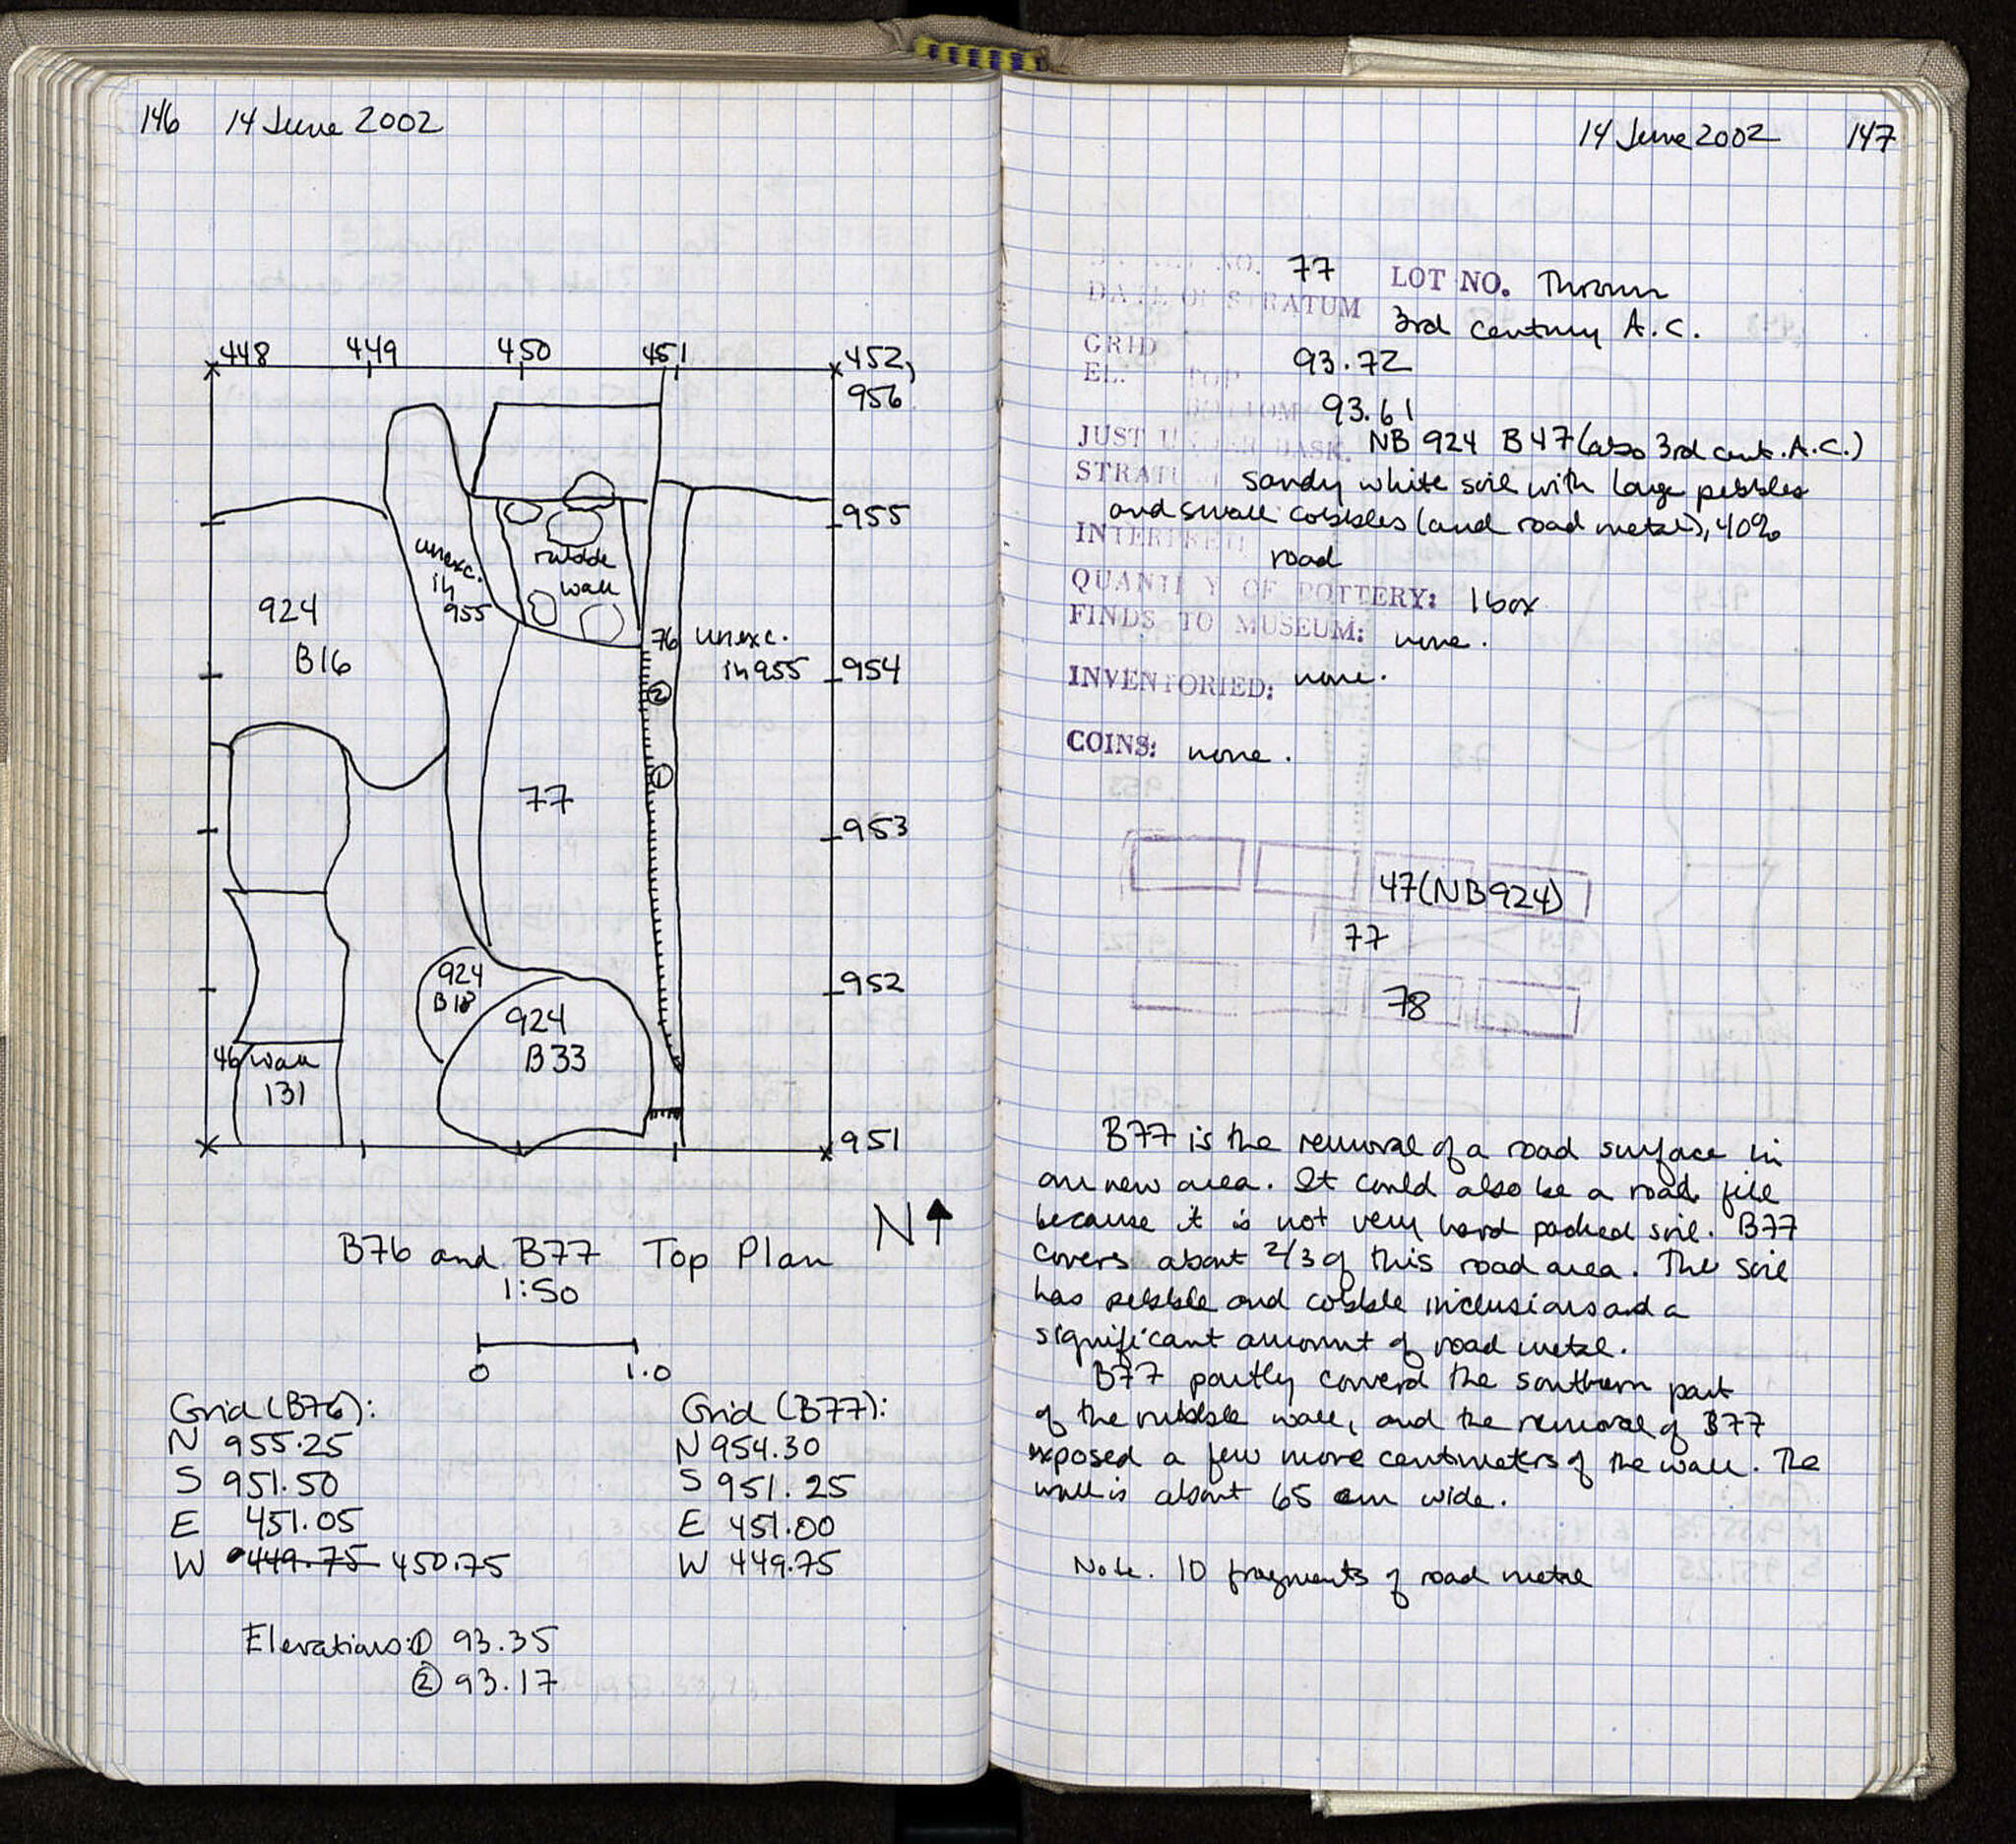 146 14 June 2002
448 449 450 451 452,
956
955
unexc.
in
955
rubble
wall
924
B16
76 unexc.
in 955
954
②
①
77
953
924
B18
952
924
B33
46 wall
131
951
N
B76 and B77 Top Plan
1:50
0 1.0
Grid (B76):
N 955.25
S 951.50
E 451.05
W 449.75 450.75
Grid (B77):
N 954.30
S 951.25
E 451.00
W 449.75
Elevations: ① 93.35
② 93.17
14 June 2002 147
BASKET NO. 77 LOT NO. Thrown
DATE OF STRATUM 3rd century A.C.
GRID
EL. TOP 93.72
BOTTOM 93.61
JUST UNDER BASK. NB 924 B47 (also 3rd cent. A.C.)
STRATUM sandy white soil with large pebbles
and small cobbles (and road metal), 40%
INTERPRET: road
QUANTITY OF POTTERY: 1 box
FINDS TO MUSEUM: none.
INVENTORIED: none.
COINS: none.
47 (NB924)
77
78
B77 is the removal of a road surface in
our new area. It could also be a road fill
because it is not very hard packed soil. B77
covers about 2/3 of this road area. The soil
has pebble and cobble inclusions and a
significant amount of road metal.
B77 partly covered the southern part
of the rubble wall, and the removal of B77
exposed a few more centimeters of the wall. The
wall is about 65 cm wide.
Note. 10 fragments of road metal